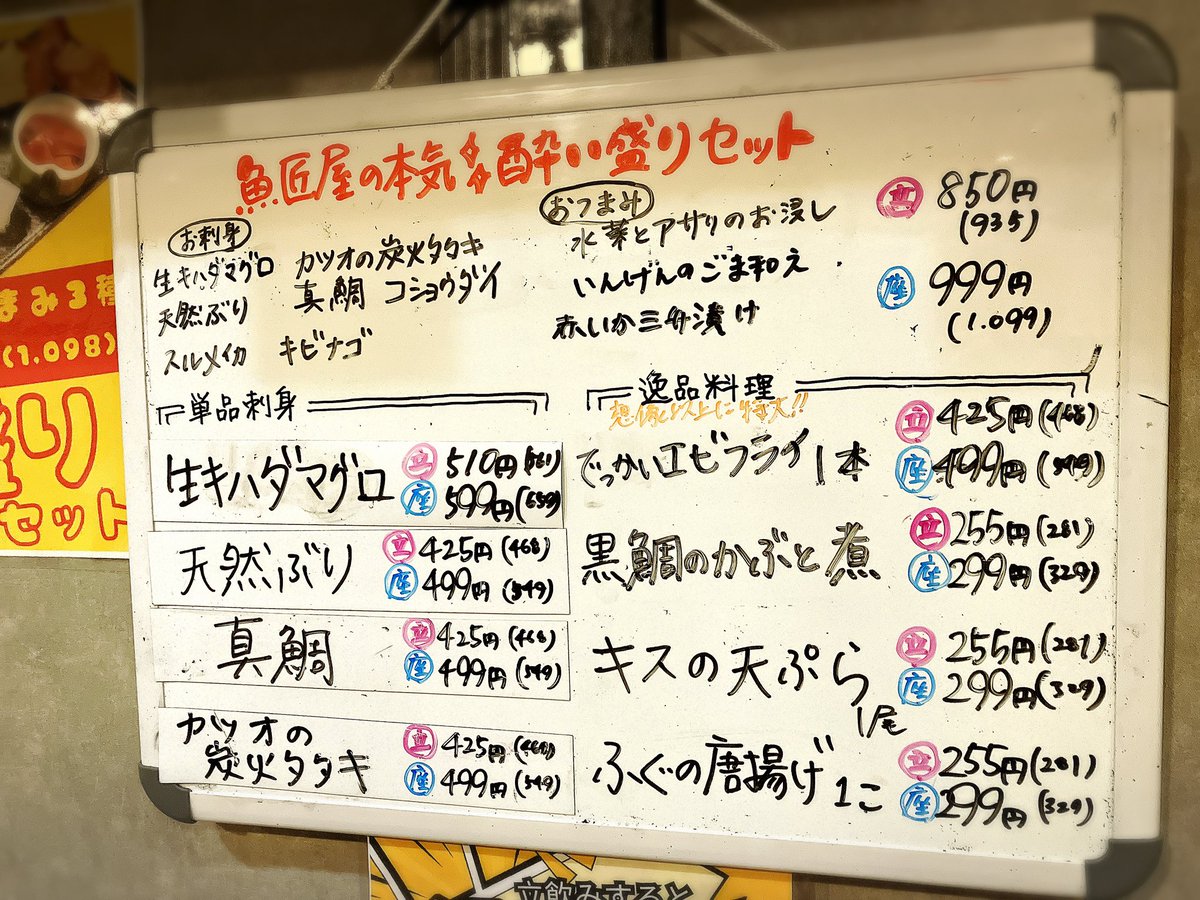 魚匠屋の本気酔い盛りセット
お刺身
生キハダマグロ カツオの炭火タタキ
天然ぶり 真鯛 コショウダイ
スルメイカ キビナゴ
おつまみ
水菜とアサリのお浸し
いんげんのごま和え
赤いか三升漬け
立 850円
(935)
座 999円
(1.099)
単品刺身
生キハダマグロ 立 510円(561)
座 599円(659)
天然ぶり 立 425円(468)
座 499円(549)
真鯛 立 425円(468)
座 499円(549)
カツオの炭火タタキ 立 425円(468)
座 499円(549)
逸品料理
想像以上に特大!!
でっかいエビフライ1本 立 425円(468)
座 499円(549)
黒鯛のかぶと煮 立 255円(281)
座 299円(329)
キスの天ぷら 1尾 立 255円(281)
座 299円(329)
ふぐの唐揚げ 1こ 立 255円(281)
座 299円(329)
まみ3種
(1.098)
盛り
セット
立飲みすると